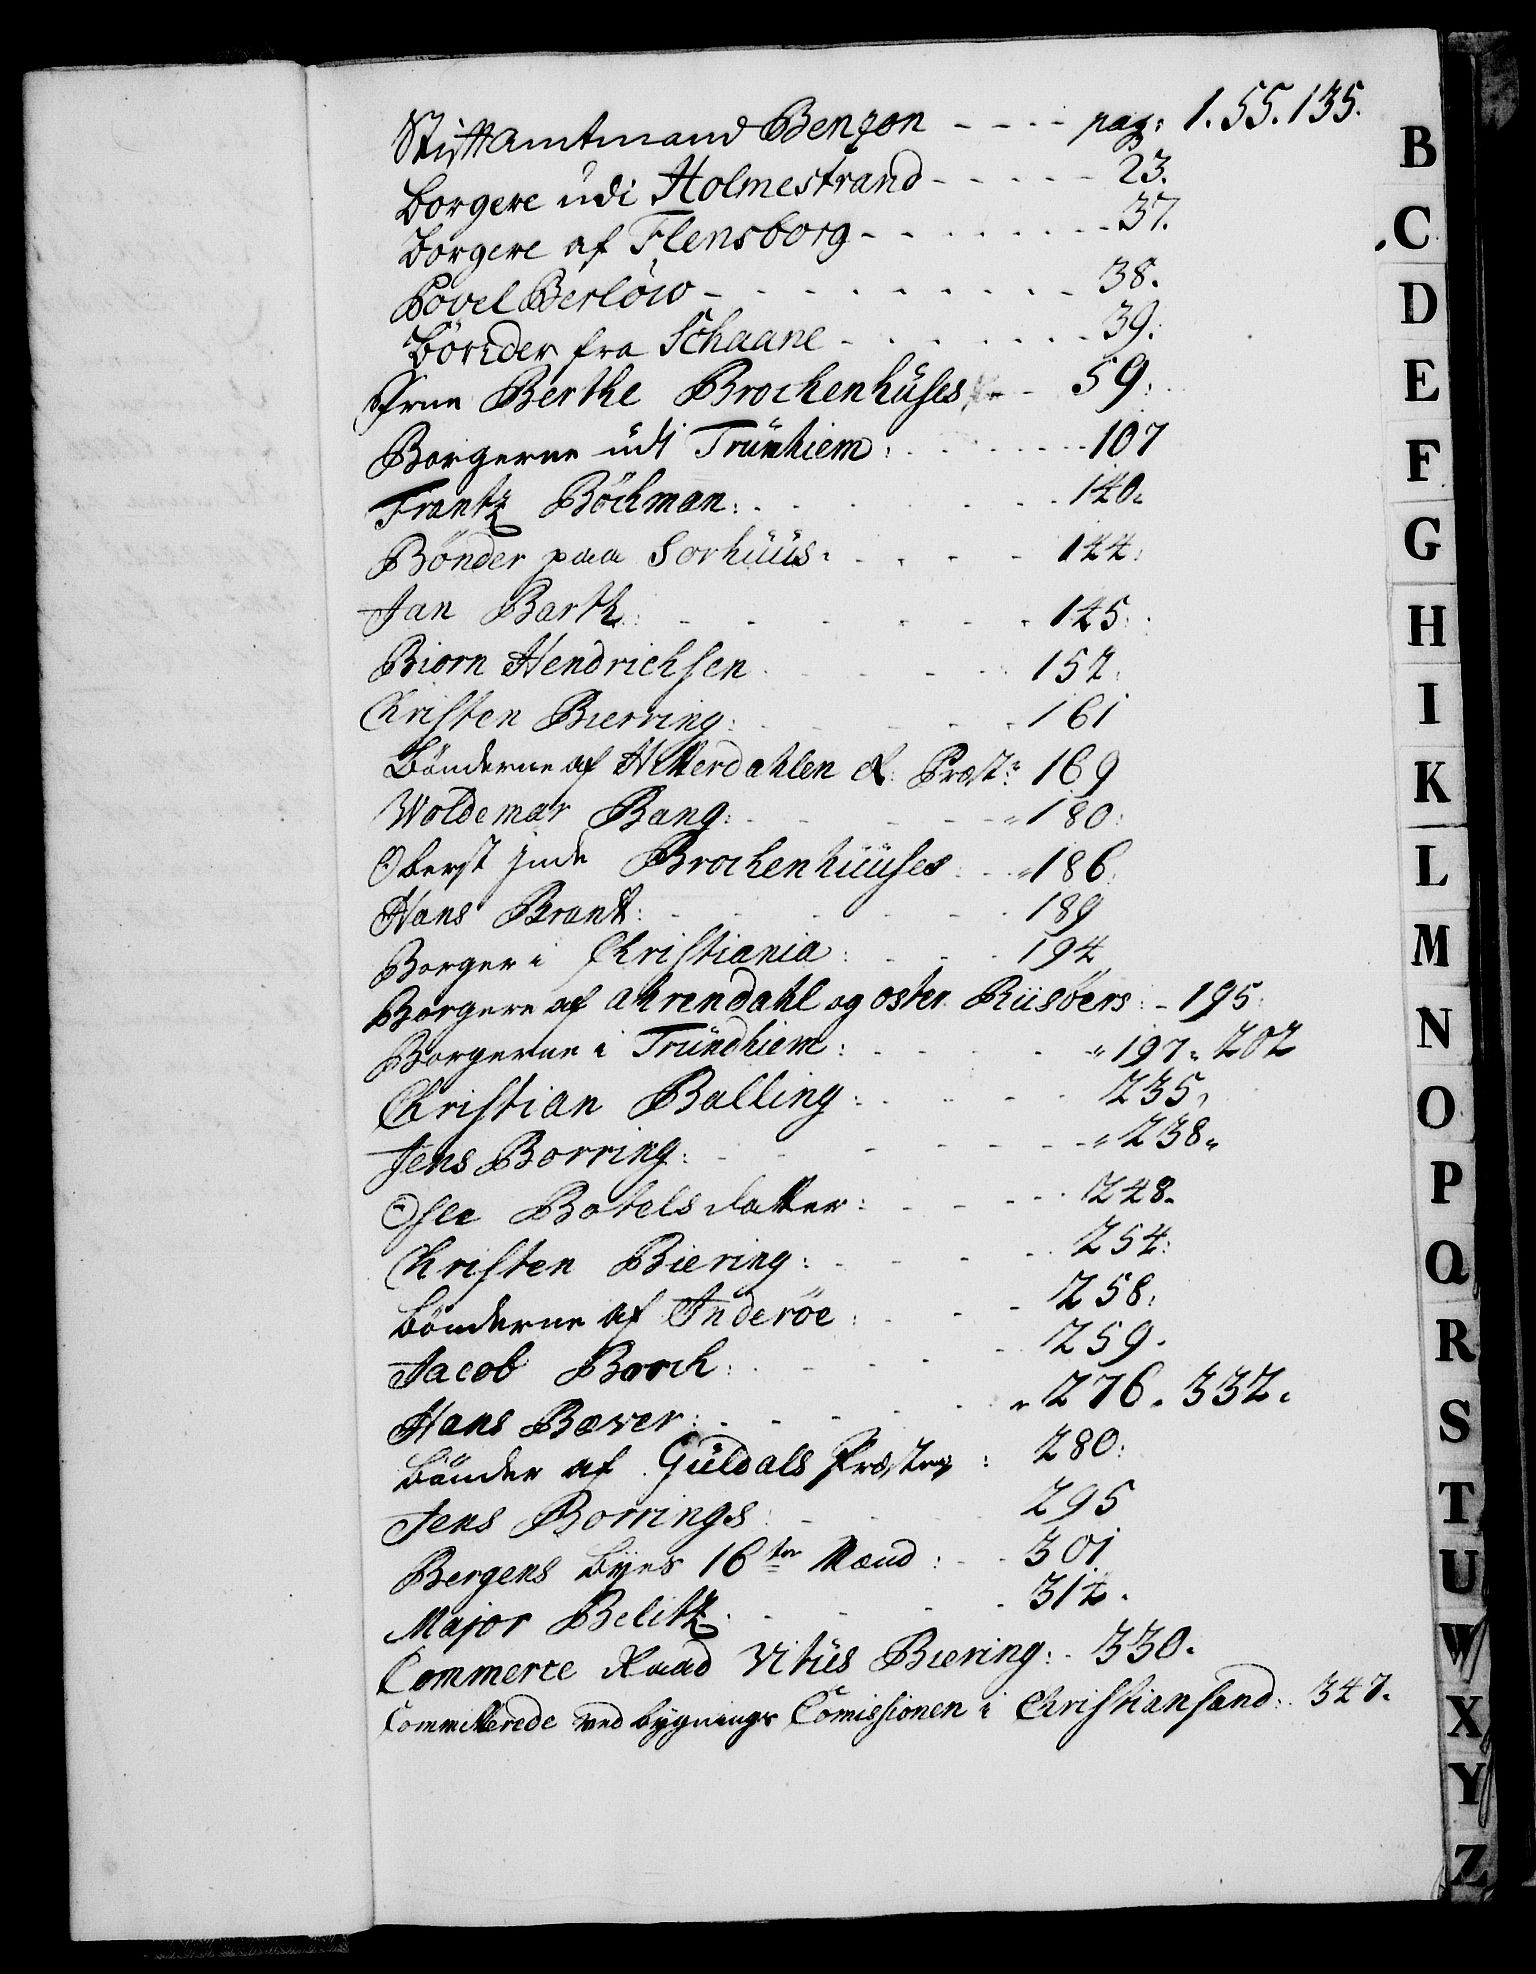 Stiftamtmand Benzon - - - - pag: 1. 55. 135.
Borgere udi Holmestrand - - - - - 23.
Borgere af Flensborg - - - - - - - - 37.
Povel Berlöw - - - - - - - - - - 38.
Bönder fra Schaane - - - - - - - 39.
Frue Berthe Brochenhüses - - 59:
Borgerne udi Trünhiem: - - - - - - 107
Frantz Böchman: - - - - - - - 140.
Bönder paa Sorhüüs: - - - - 144:
Jan Barth: - - - - - - - 145:
Biorn Hendrichsen - - - - - 152.
Christen Bierring: - - - - - - 161
Bönderne af Hitterdahlen & Præst: 169
Woldemar Bang: - - - - - - 180:
Oberst Brochenhüüses: - - 186.
Hans Brant: - - - - - - - 189
Borger i Christiania: - - - - 194
Borgere af Ahrendahl og Oster Riisöers: - 195:
Borgerne i Tründhiem: - - - - - 197. 202
Christian Balling: - - - - - 235,
Jens Borring: - - - - - - - 238.
Botelsdatter: - - - - - 248.
Christen Biering: - - - - - 254:
Bönderne af Inderöe: - - - - 258.
Jacob Broch: - - - - - - 259.
Hans Bæver: - - - - - - 276. 332.
Bönder af Güldals Præsteg: 280:
Jens Borrings: - - - - 295
Bergens byes 16 ten Mænd: - - 301
Major Belitz: - - - - - 314.
Commerce Raad Vitüs Biering: - 330.
Committerede ved bygnings Comissionen i Christiansand: 347.
B
C
D
E
F
G
H
I
K
L
M
N
O
P
Q
R
S
T
U
W
X
Y
Z